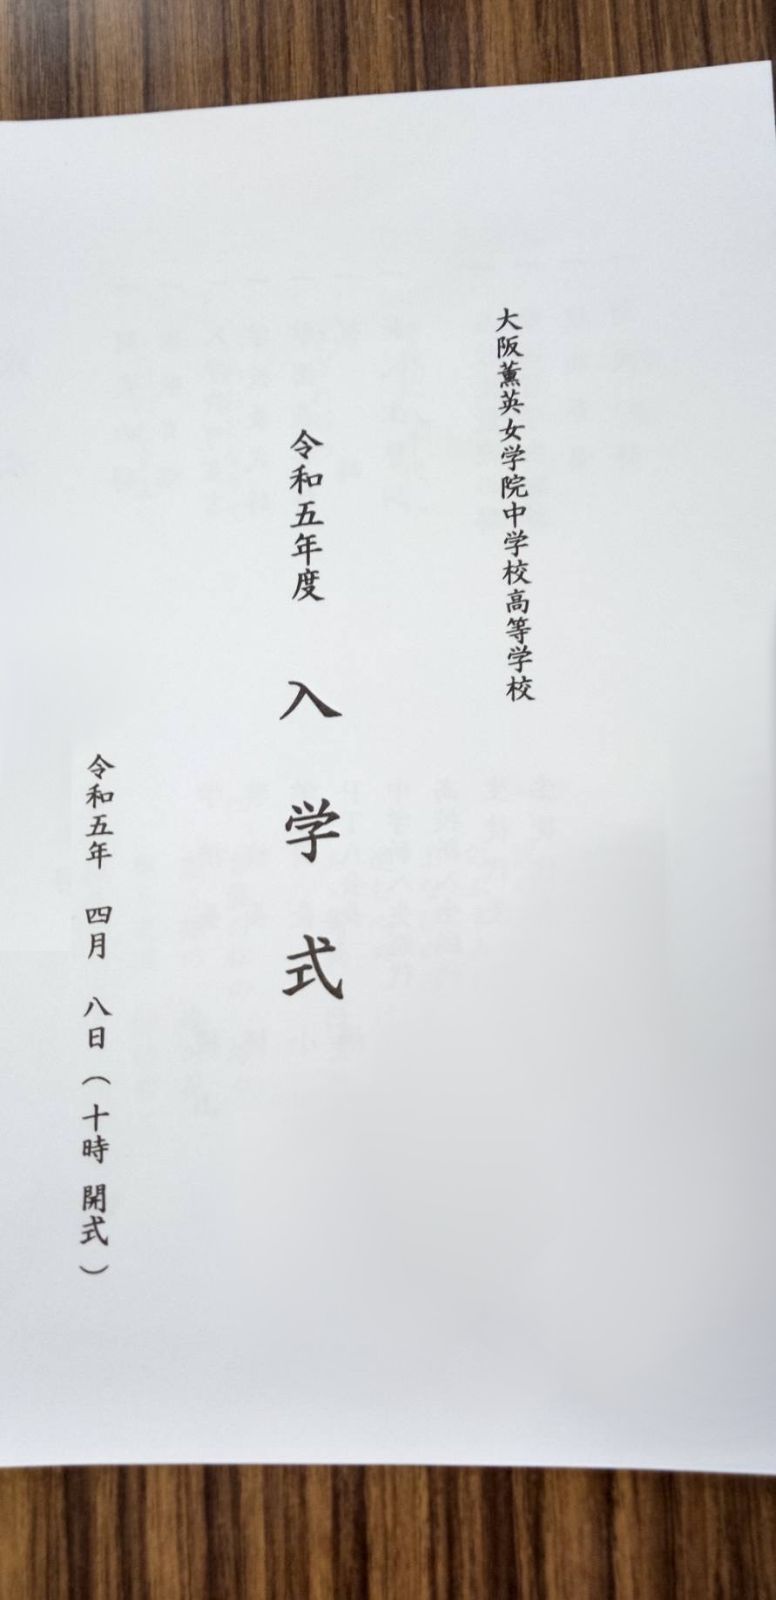 大阪薫英女学院中学校高等学校
令和五年度 入学式
令和五年 四月 八日(十時 開式)